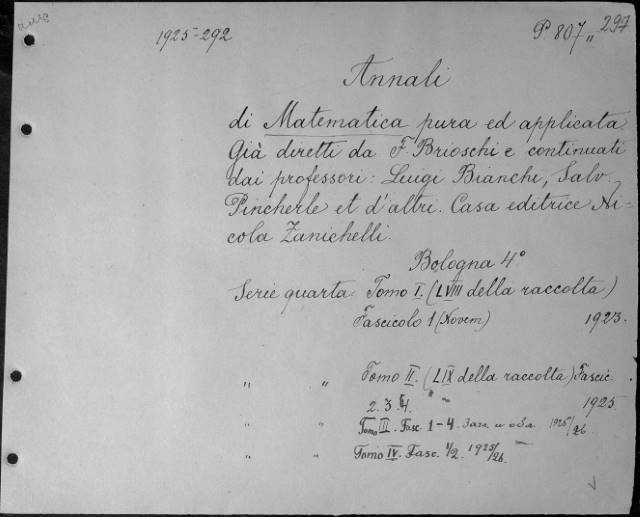 1925-292
P 807, 297
Annali
di Matematica pura ed applicata
Già diretti da F Brioschi e continuati
dai professori: Luigi Bianchi, Salv.
Pincherle et d'altri. Casa editrice Ni-
cola Zanichelli.
Bologna 4°
Serie quarta Tomo I. (LVIII della raccolta)
Fascicolo 1 (Novem) 1923.
" " Tomo II. (LIX della raccolta) Fascic.
2. 3 4. " " 1925
" " Tomo III. Fasc. 1-4. Загл. и обл. 1925/26
" " Tomo IV. Fasc. 1/2. 1925/26.